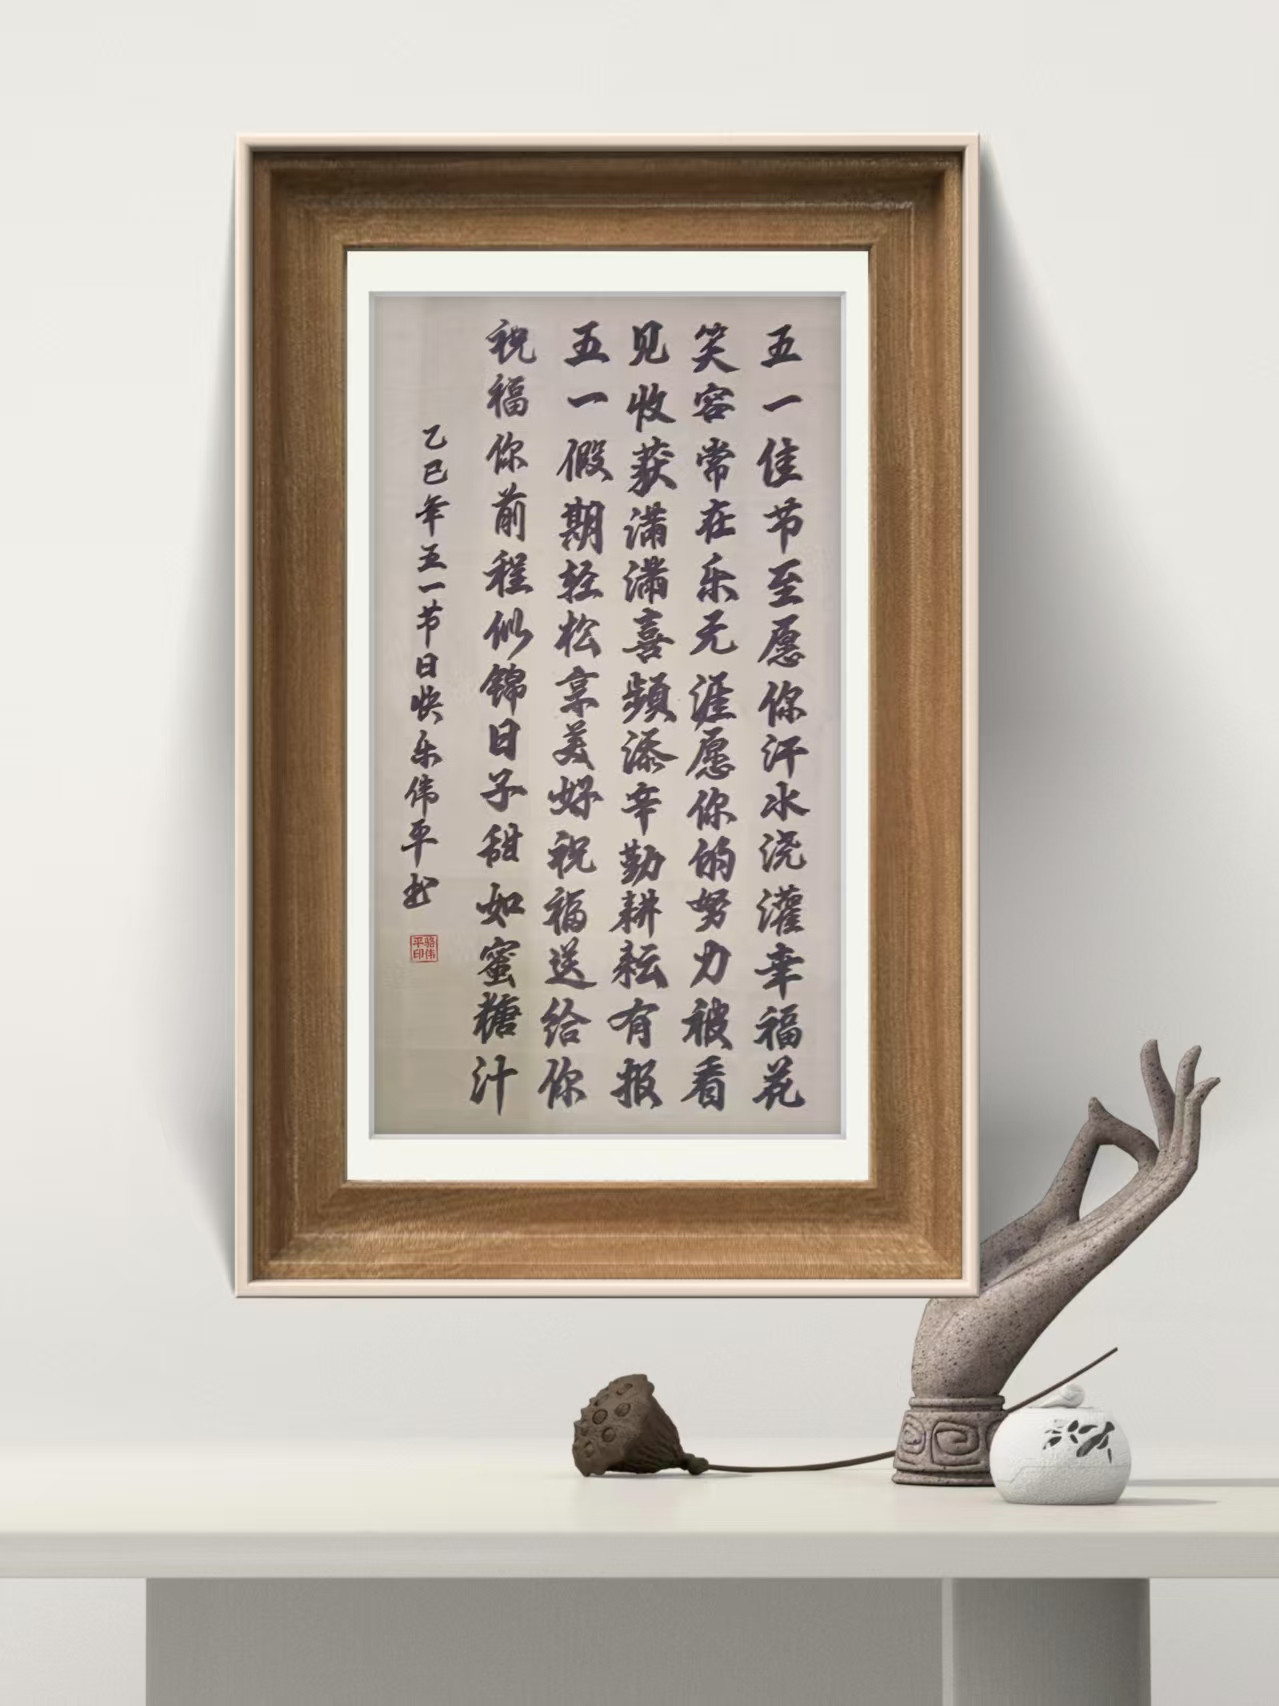 五一佳节至愿你汗水浇灌幸福花
笑容常在乐无涯愿你的努力被看
见收获满满喜频添辛勤耕耘有报
五一假期轻松享美好祝福送给你
祝福你前程似锦日子甜如蜜糖汁
乙巳年五一节日快乐伟平书
骆伟
平印